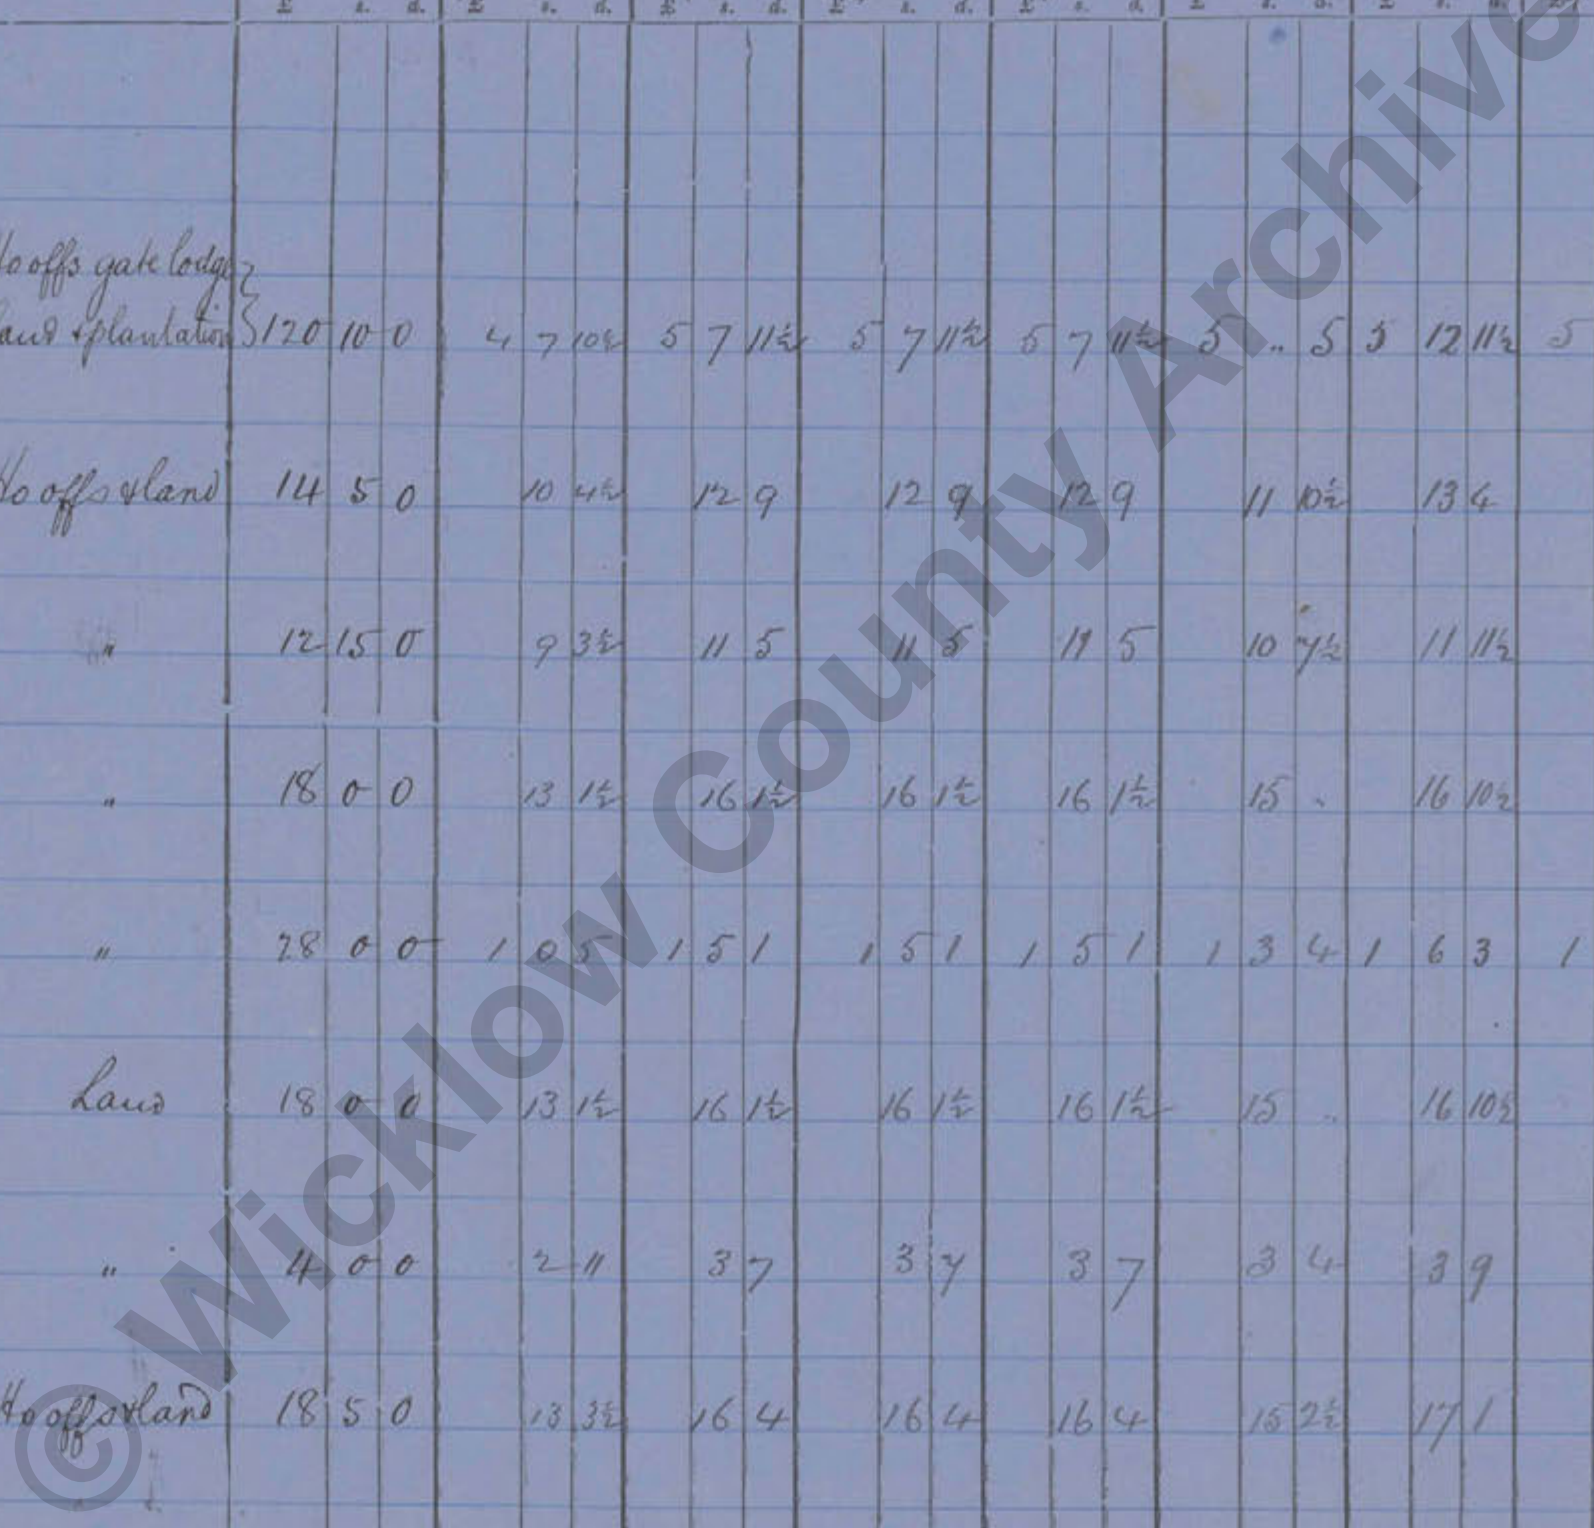 £ s. d. £ s. d. £ s. d. £ s. d. £ s. d. £ s. d. £ s. d.
Ho offs gate lodge
land & plantation } 120 10 0 4 7 10½ 5 7 11½ 5 7 11½ 5 7 11½ 5 .. 5 5 12 11½ 5
Ho offs & land 14 5 0 10 4½ 12 9 12 9 12 9 11 10½ 13 4
" 12 15 0 9 3½ 11 5 11 5 11 5 10 7½ 11 11½
" 18 0 0 13 1½ 16 1½ 16 1½ 16 1½ 15 .. 16 10½
" 28 0 0 1 0 5 1 5 1 1 5 1 1 5 1 1 3 4 1 6 3 1
Land 18 0 0 13 1½ 16 1½ 16 1½ 16 1½ 15 .. 16 10½
" 4 0 0 2 11 3 7 3 7 3 7 3 4 3 9
Ho offs & land 18 5 0 13 3½ 16 4 16 4 16 4 15 2½ 17 1
© Wicklow County Archive